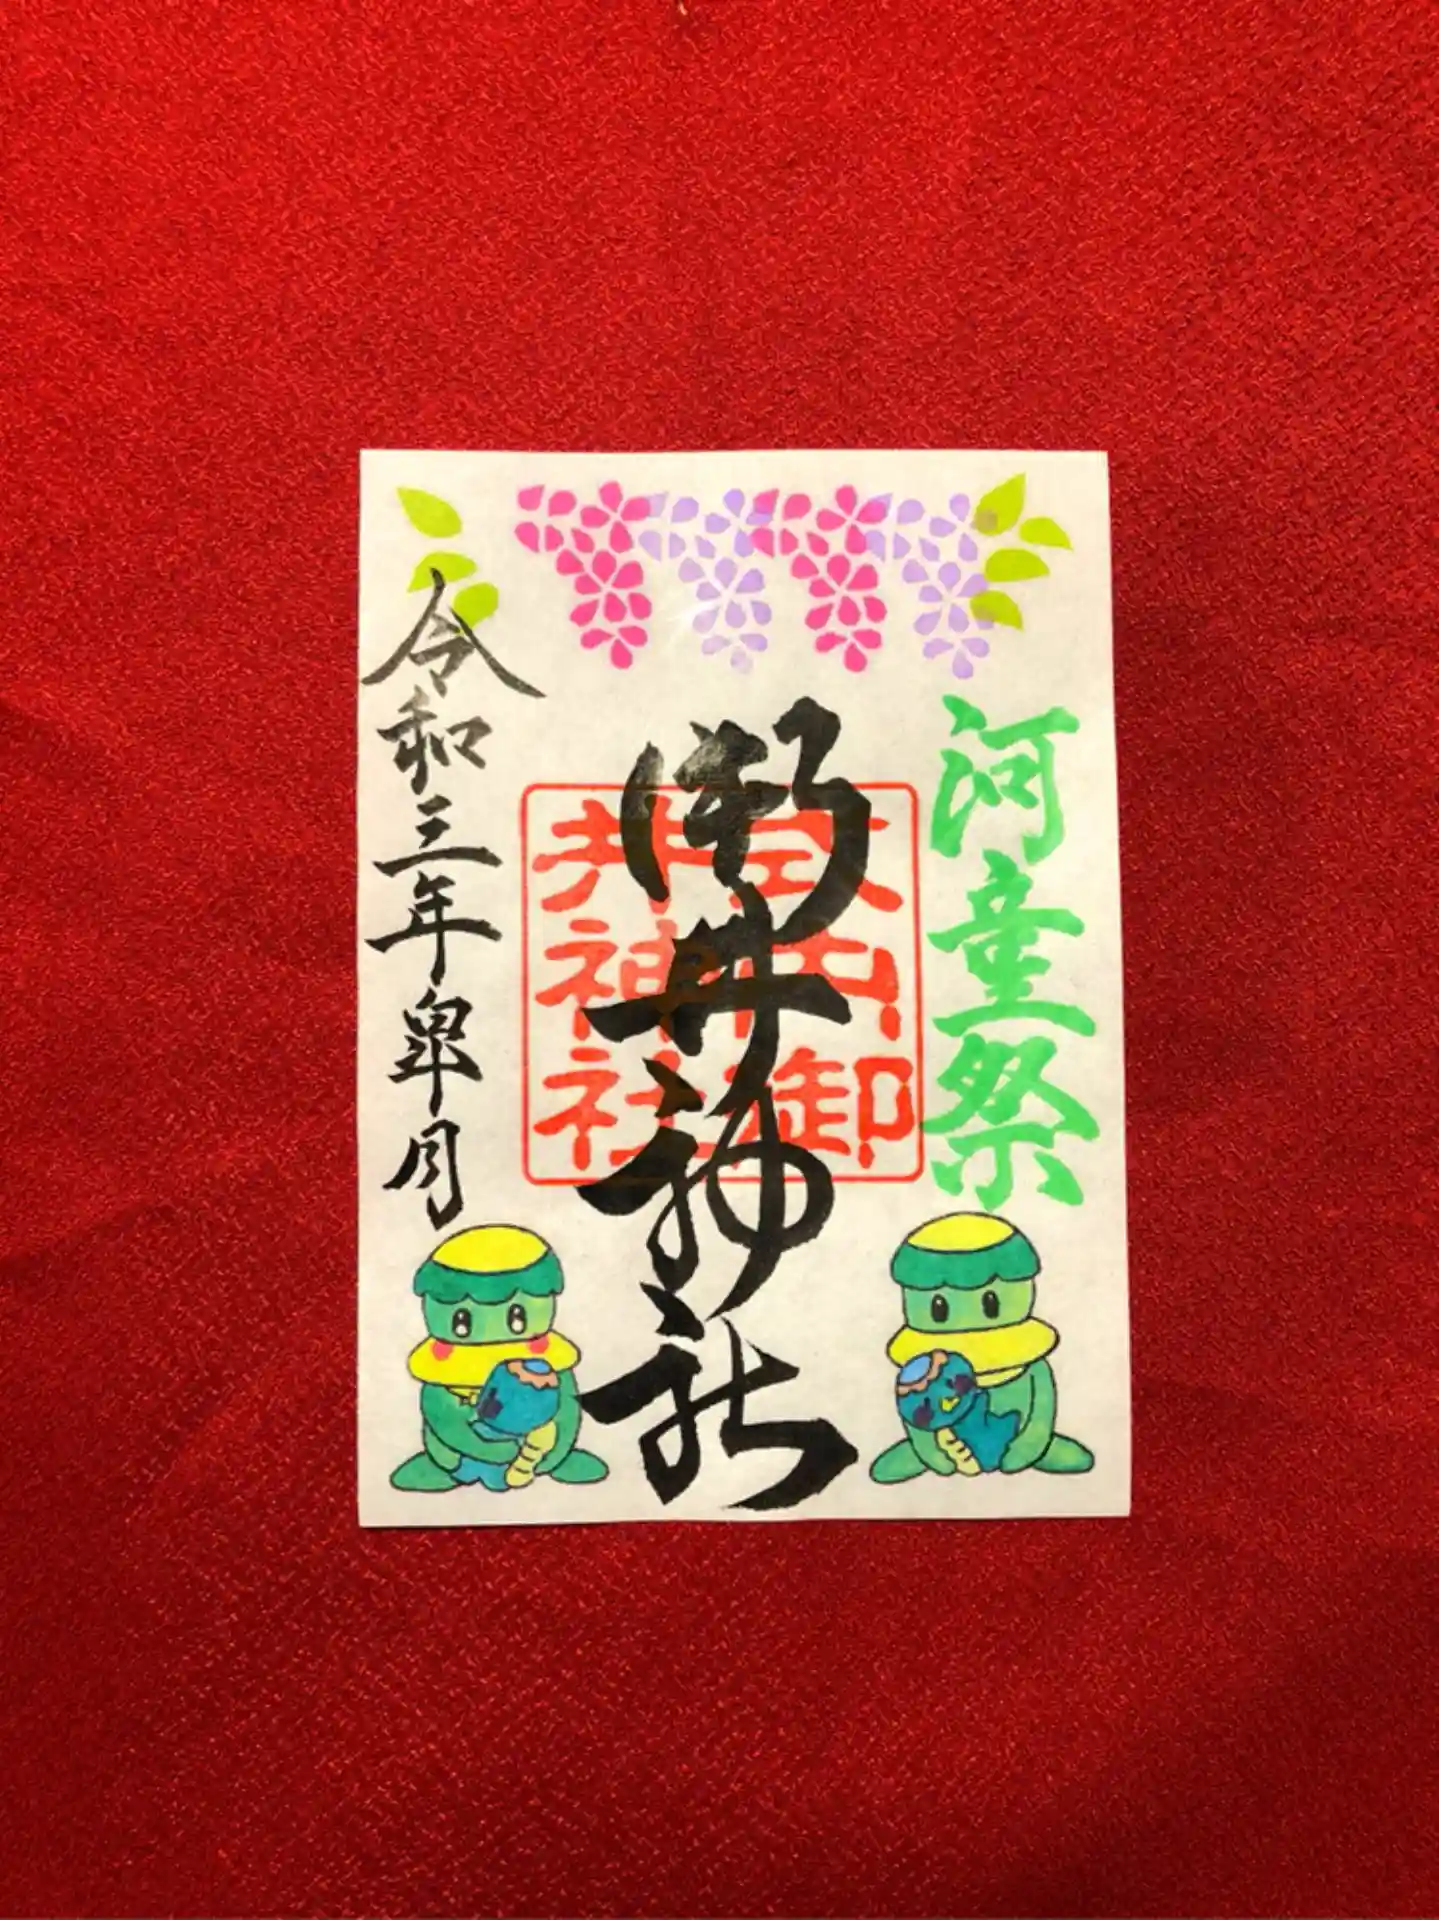 河童祭
御井神社
式内御
井神社
令和三年皐月